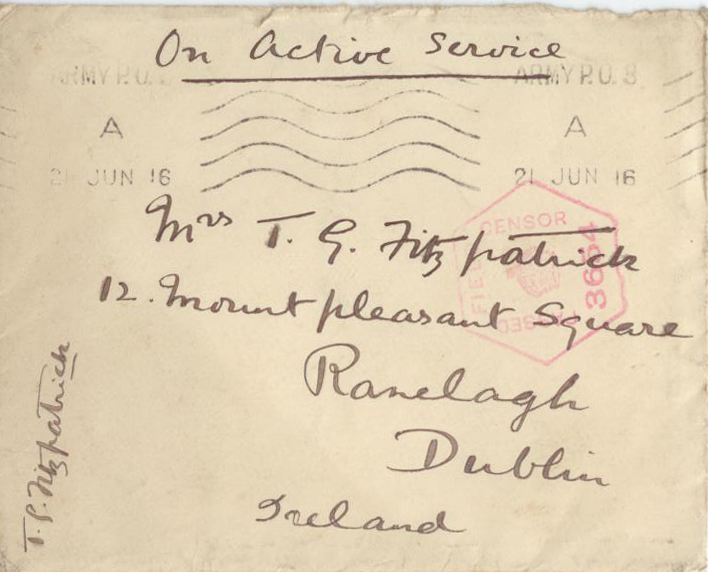 On Active Service
ARMY P.O. ARMY P.O. 8
A A
21 JUN 16 21 JUN 16
CENSOR
FIELD
PASSED
3664
Mrs T. G. Fitzpatrick
12. Mountpleasant Square
Ranelagh
Dublin
Ireland
T. G. Fitzpatrick